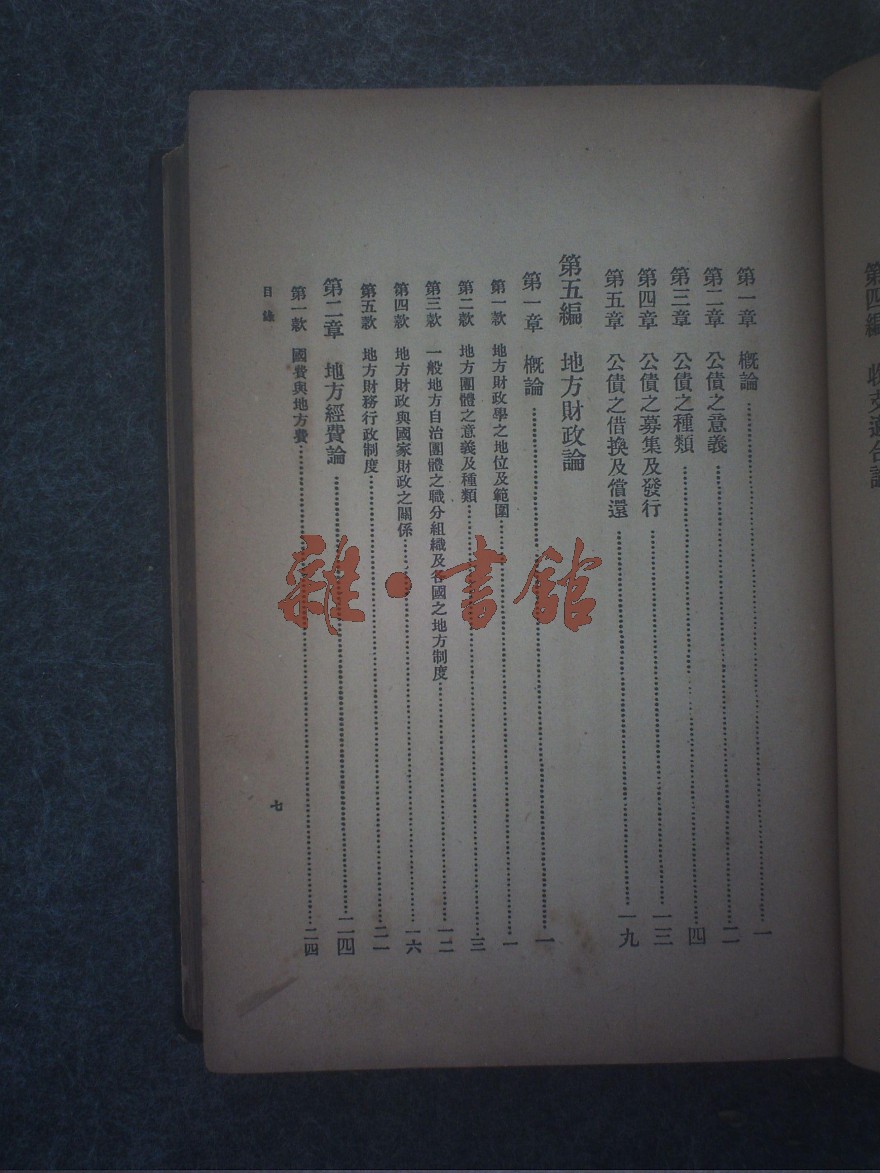 第四編 收支適合論
第一章 概論 一
第二章 公債之意義 二
第三章 公債之種類 四
第四章 公債之募集及發行 一三
第五章 公債之借換及償還 一九
第五編 地方財政論
第一章 概論 一
第一款 地方財政學之地位及範圍 一
第二款 地方團體之意義及種類 三
第三款 一般地方自治團體之職分組織及各國之地方制度 一二
第四款 地方財政與國家財政之關係 一六
第五款 地方財務行政制度 二一
第二章 地方經費論 二四
第一款 國費與地方費 二四
目錄
七
雜·書館